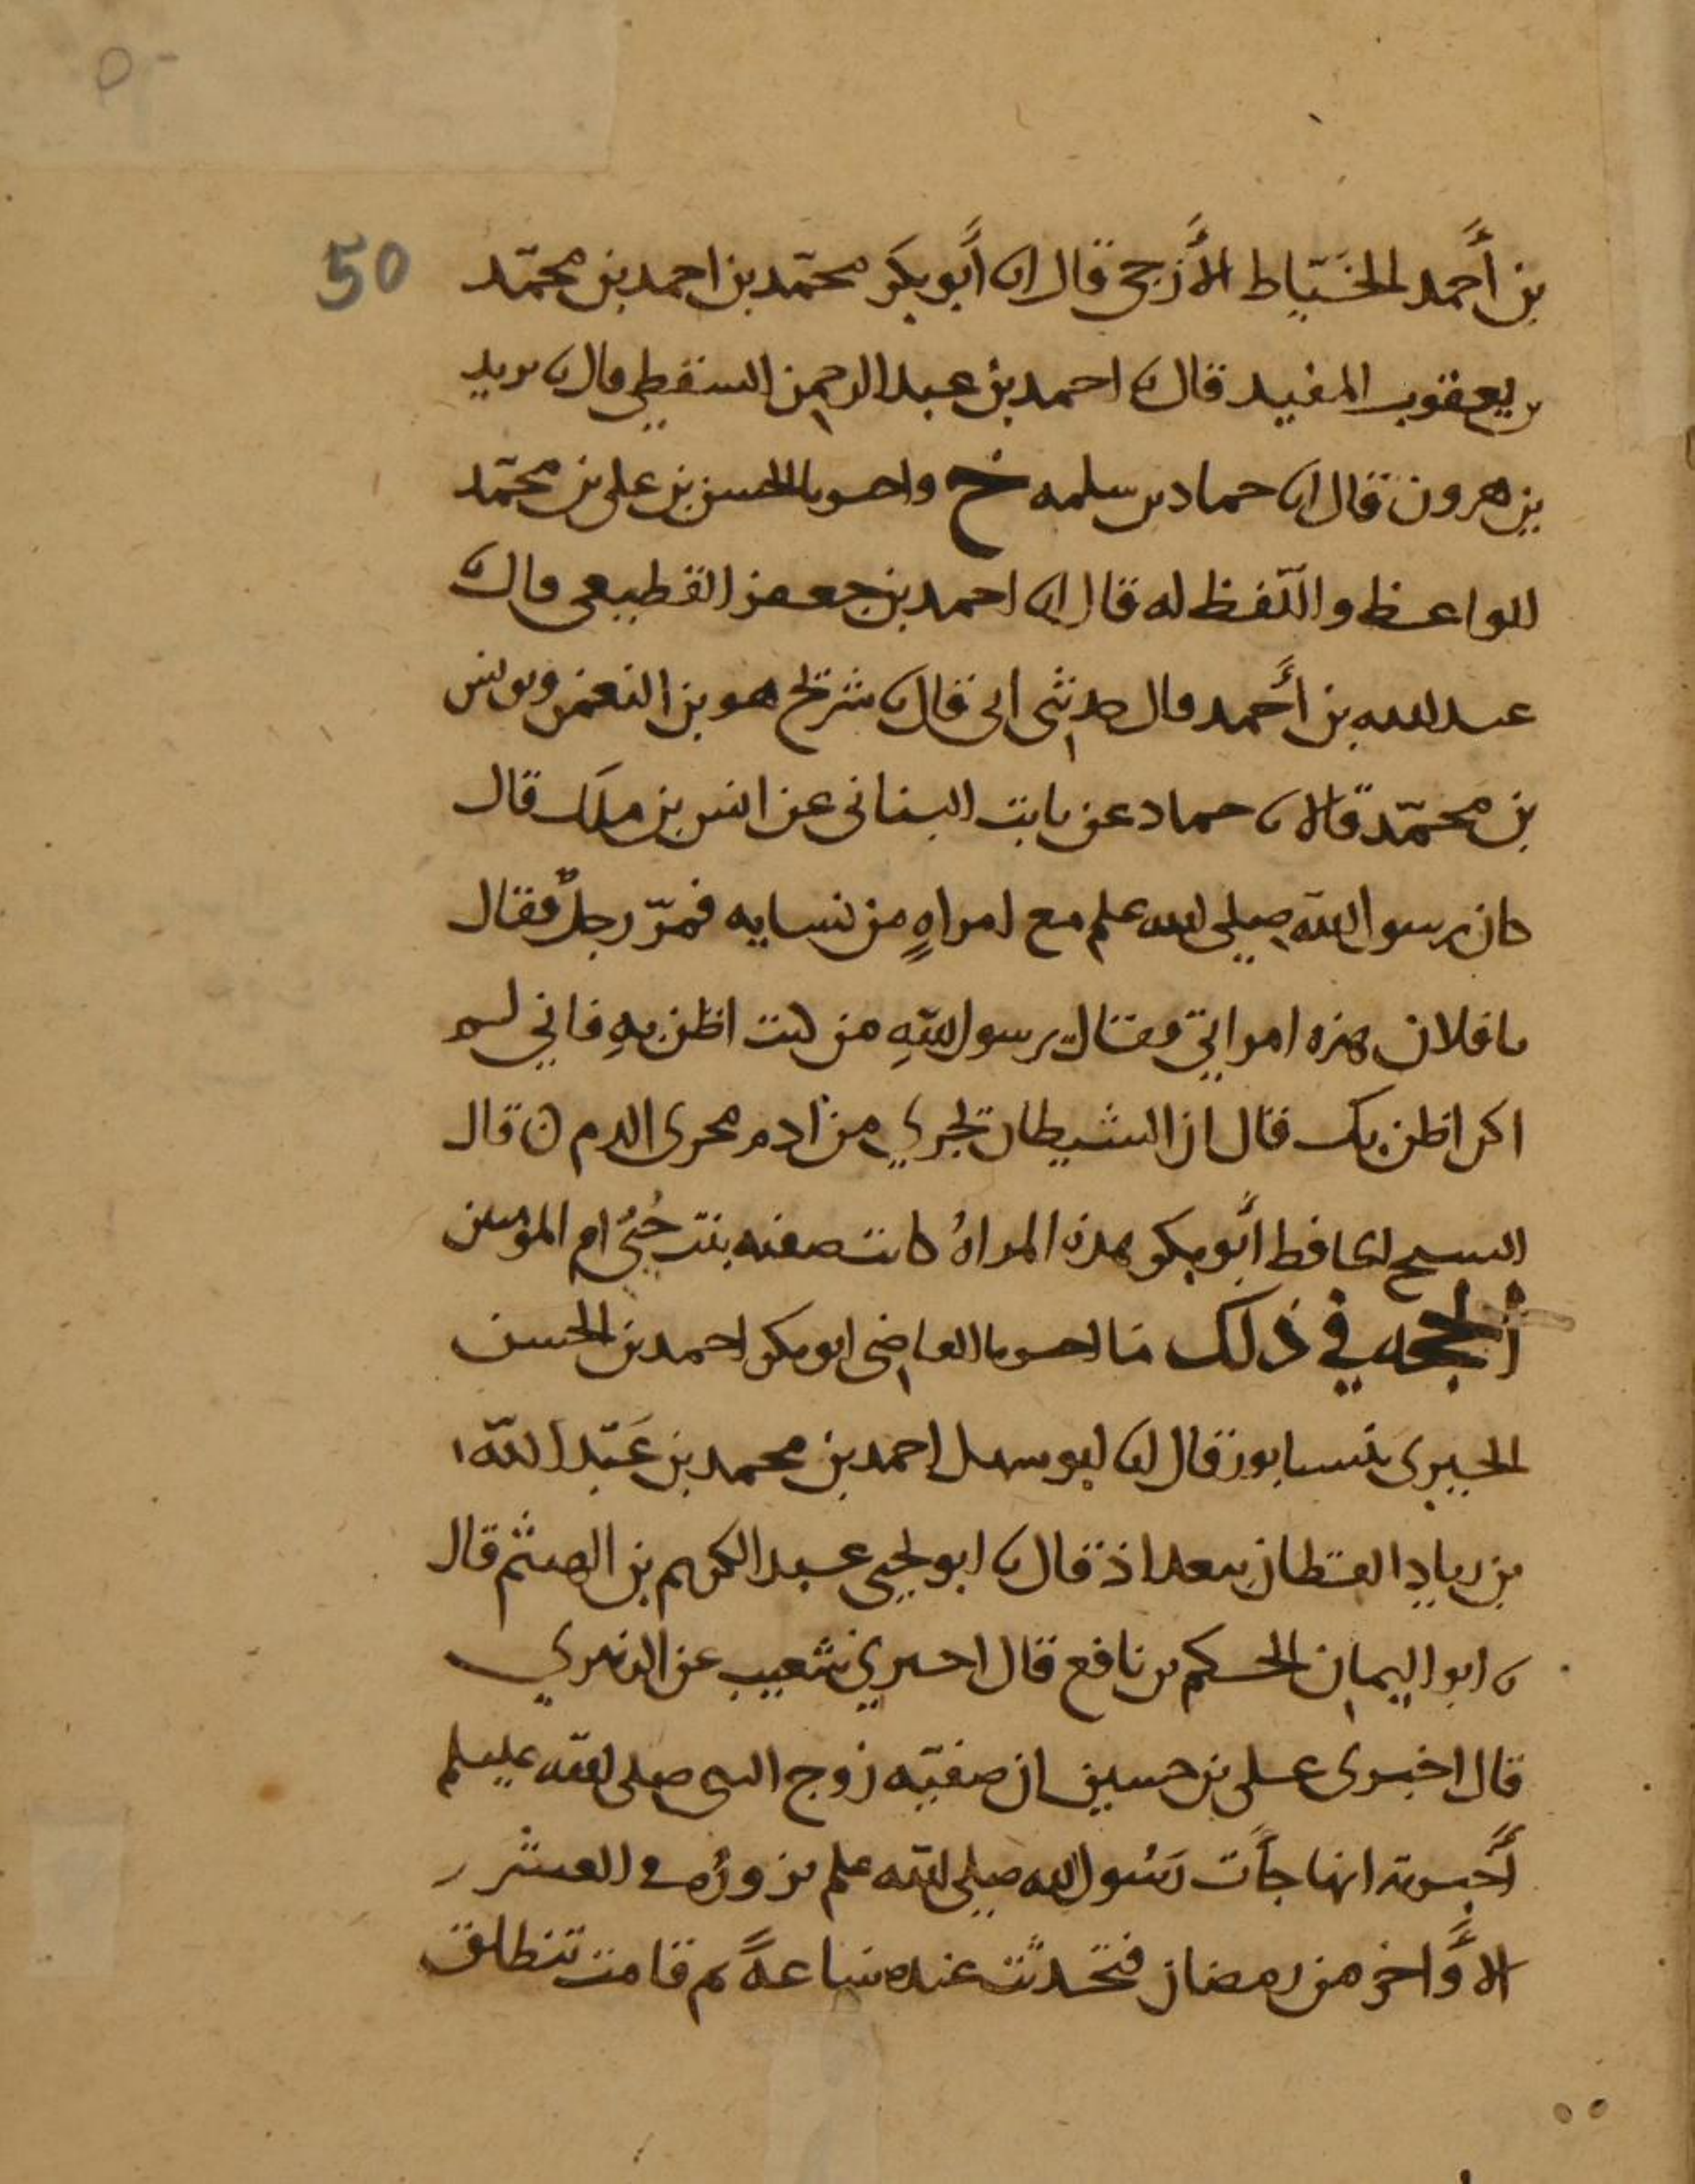 ٥٠
50
بن أحمد الخياط الأزجي قال انا أبو بكر محمد بن احمد بن محمد
بن يعقوب المفيد قال نا احمد بن عبد الرحمن السقطي قال نا يزيد
بن هرون قال انا حماد بن سلمه ح واخبرنا الحسن بن علي بن محمد
الواعظ واللفظ له قال انا احمد بن جعفر القطيعي قال نا
عبد الله بن أحمد قال حدثني ابي قال نا سريج هو بن النعمن ويونس
بن محمد قالا نا حماد عن ثابت البناني عن انس بن ملك قال
كان رسول الله صلى الله عليه وسلم مع امراهٍ من نسايه فمرّ رجلٌ فقال
يا فلان هذه امراتي فقال يرسول اللهِ من كنت اظن بهِ فاني لم
اكن اظن بك قال ان الشيطان يجري من ادم مجرى الدم ن قال
الشيخ الحافظ أبو بكر هذه المراهُ كانت صفيه بنت حُيَي ام المومنين
الحجه في ذلك ما اخبرنا القاضي ابو بكر احمد بن الحسن
الحيري بنيسابور قال انا ابو سهل احمد بن محمد بن عَبد الله
بن زياد القطان ببغداذ قال نا ابو يحيى عبد الكريم بن الهيثم قال
نا ابو اليمان الحكم بن نافع قال اخبرني شعيب عن الزهري
قال اخبرني علي بن حسين ان صفيّه زوج النبي صلى الله عليه وسلم
أخبرته انها جأت رَسُول الله صلى الله عليه وسلم تزورُه في العشر
الأواخر من رمضان فتحدثت عنده ساعةً ثم قامت تنطلق